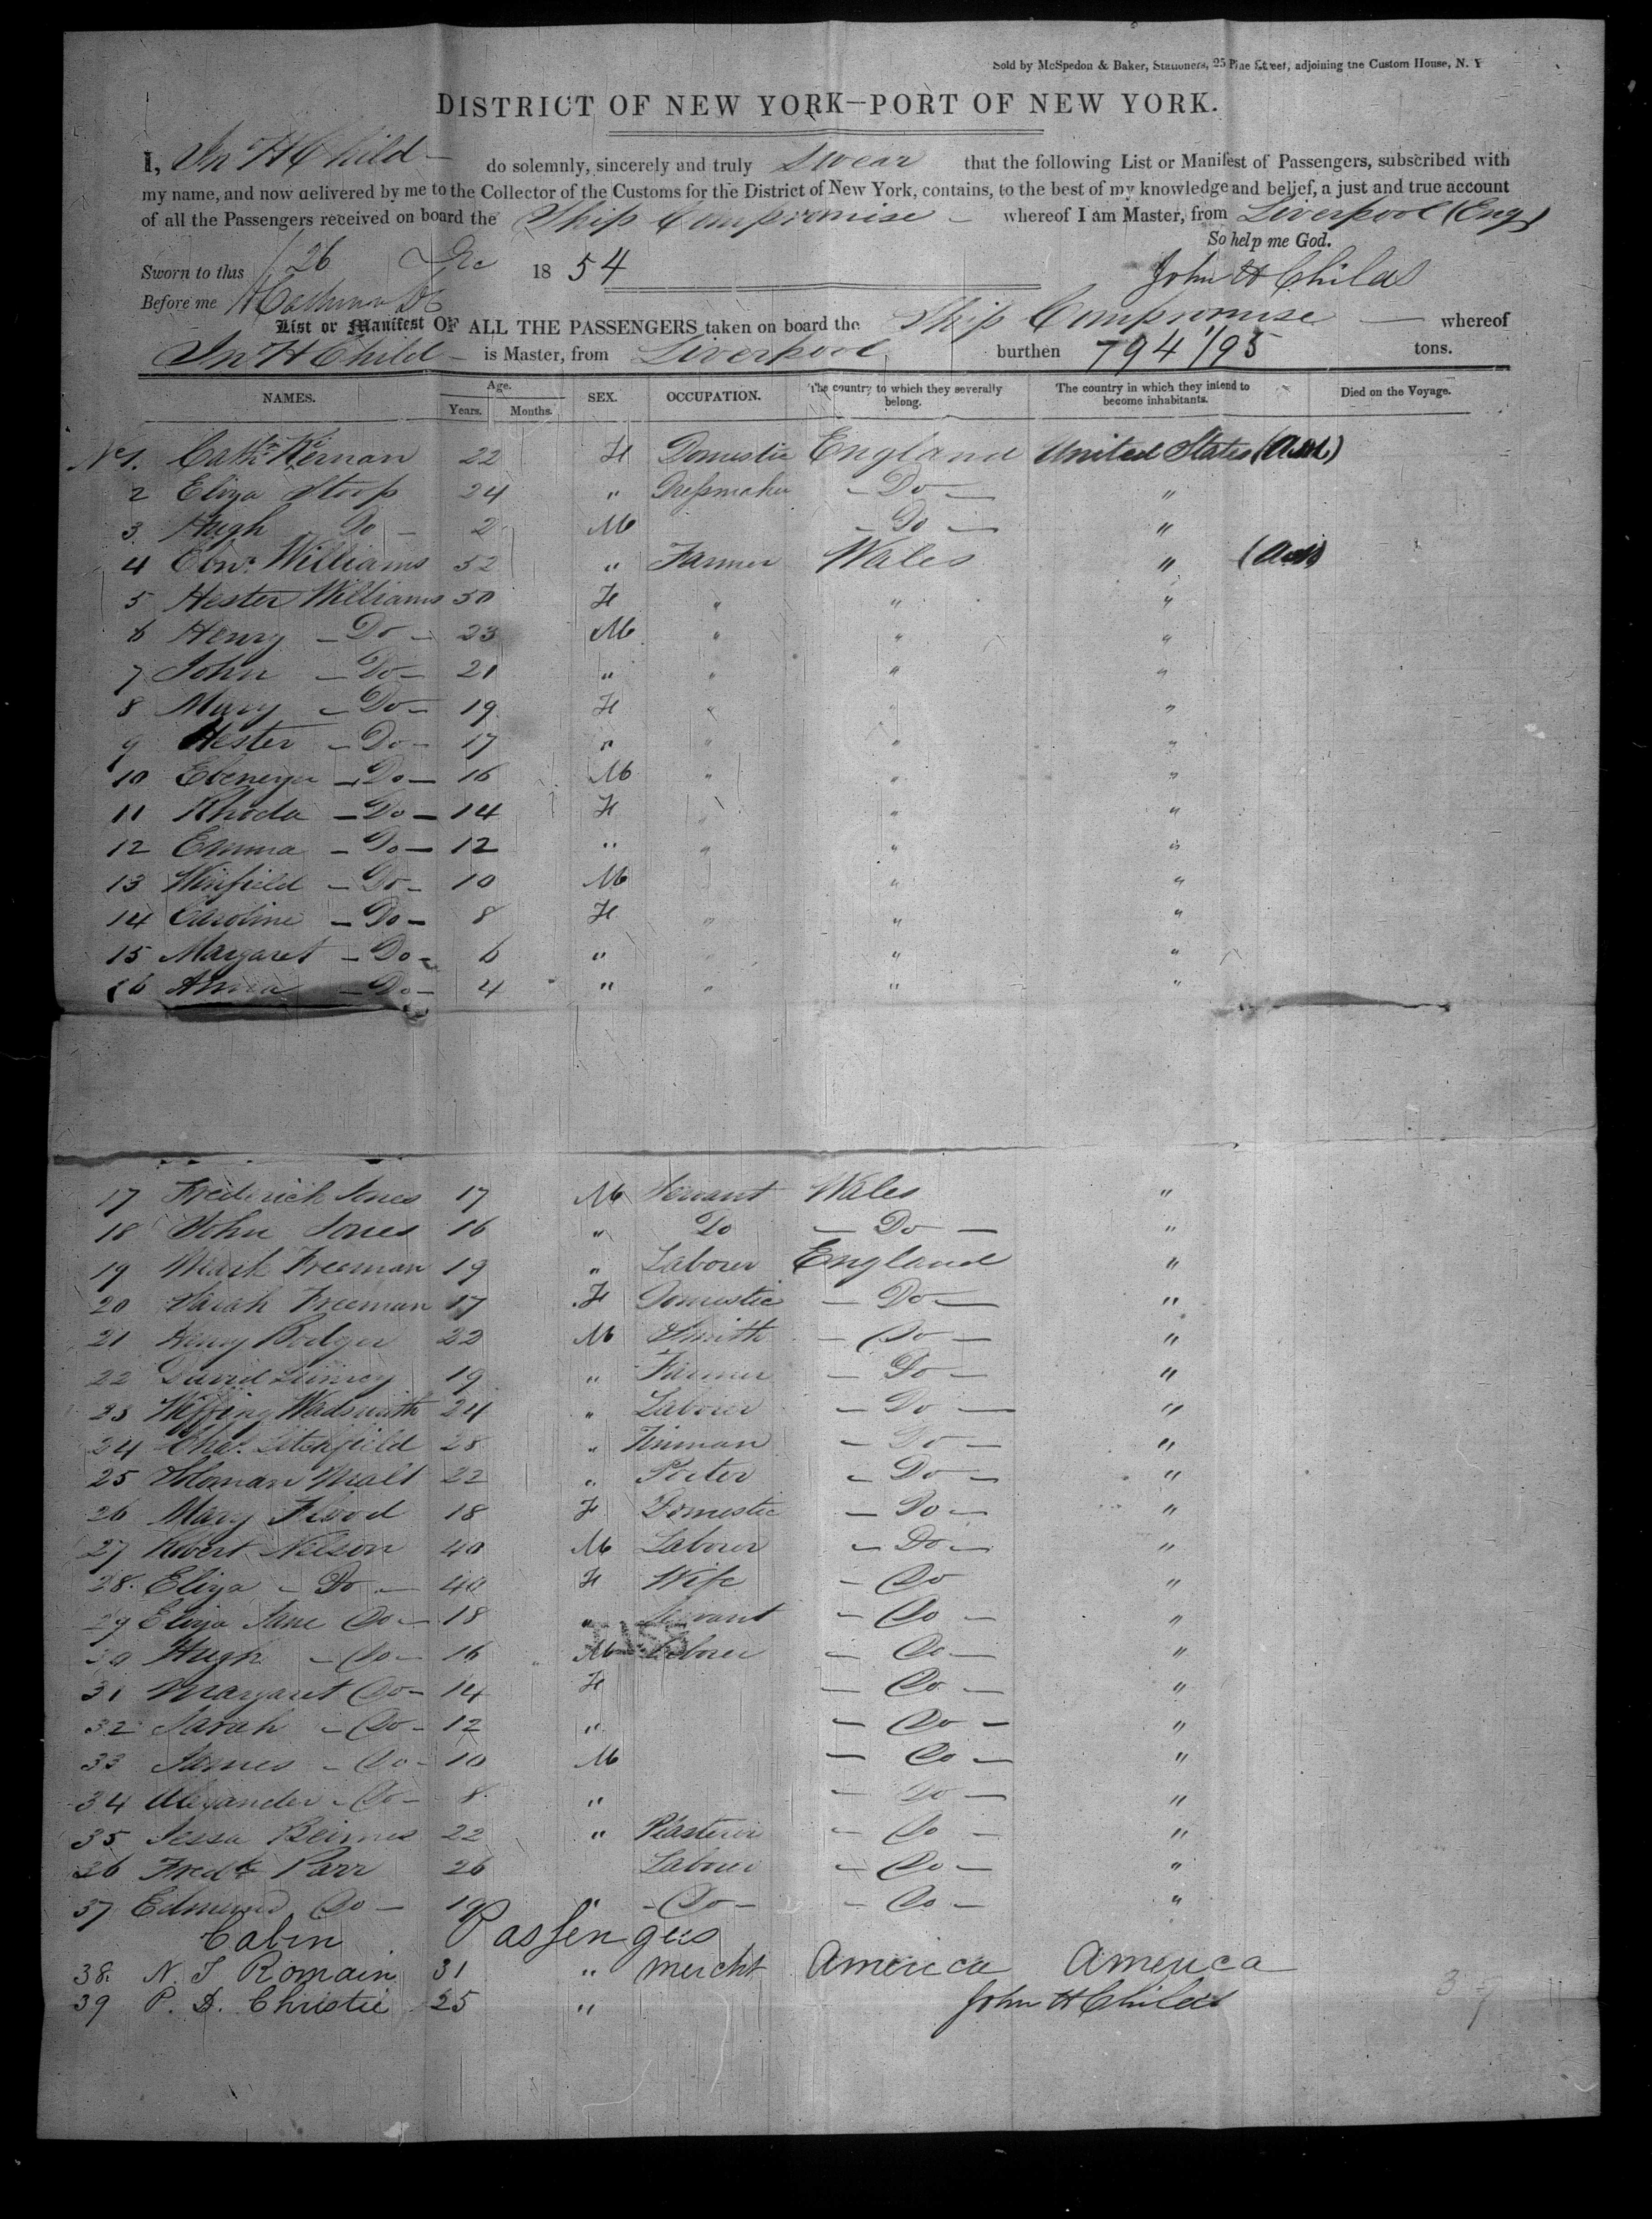 Sold by McSpedon & Baker, Stationers, 25 Pine Street, adjoining the Custom House, N. Y
DISTRICT OF NEW YORK—PORT OF NEW YORK.
I, Jn H Child — do solemnly, sincerely and truly Swear that the following List or Manifest of Passengers, subscribed with
my name, and now delivered by me to the Collector of the Customs for the District of New York, contains, to the best of my knowledge and belief, a just and true account
of all the Passengers received on board the Ship Compromise — whereof I am Master, from Liverpool (Eng)
So help me God.
Sworn to this 26 Dec 1854 John H Child
Before me
List or Manifest OF ALL THE PASSENGERS taken on board the Ship Compromise — whereof
Jn H Child — is Master, from Liverpool burthen 794 1/95 tons.
NAMES. Age. Years. Months. SEX. OCCUPATION. The country to which they severally belong. The country in which they intend to become inhabitants. Died on the Voyage.
No 1. Cath. Kernan 22 F Domestic England United States
2 Eliza Stoop 24 " Dressmaker — Do — "
3 Hugh Do — 2 M — Do — "
4 Edw. Williams 52 " Farmer Wales "
5 Hester Williams 50 F " " "
6 Henry — Do — 23 M " " "
7 John — Do — 21 " " " "
8 Mary — Do — 19 F " " "
9 Hester — Do — 17 " " " "
10 Ebenezer — Do — 16 M " " "
11 Rhoda — Do — 14 F " " "
12 Emma — Do — 12 " " " "
13 Winfield — Do — 10 M " "
14 Caroline — Do — 8 F " " "
15 Margaret — Do — 6 " " " "
16 Anna — Do — 4 " " " "
17 Frederick Jones 17 M Servant Wales "
18 John Jones 16 " Do — Do — "
19 Mark Freeman 19 " Laborer England "
20 Sarah Freeman 17 F Domestic — Do — "
21 Henry Bodger 22 M Smith — Do — "
22 David 19 " Farmer — Do — "
23 Wadsworth 24 " Laborer — Do — "
24 Chas. Litchfield 28 " — Do — "
25 Malt 22 " Porter — Do — "
26 Mary Flood 18 F Domestic — Do — "
27 Robert Nelson 40 M Laborer — Do — "
28. Eliza — Do — 40 F Wife — Do "
29 Eliza Jane Do — 18 " Servant — Do — "
30 Hugh — Do — 16 M Laborer — Do — "
31 Margaret Do — 14 F — Do — "
32 Sarah — Do — 12 " — Do — "
33 James — Do — 10 M — Do — "
34 Alexander — Do — 8 " — Do — "
35 Jessa Beirnes 22 " Plasterer — Do — "
36 Fredk Parr 26 Laborer — Do — "
37 Edmund Do — 19 " — Do — — Do — "
Cabin Passengers
38. N. T Romain 31 " Mercht America America
39 P. D. Christie 25 " John H Child